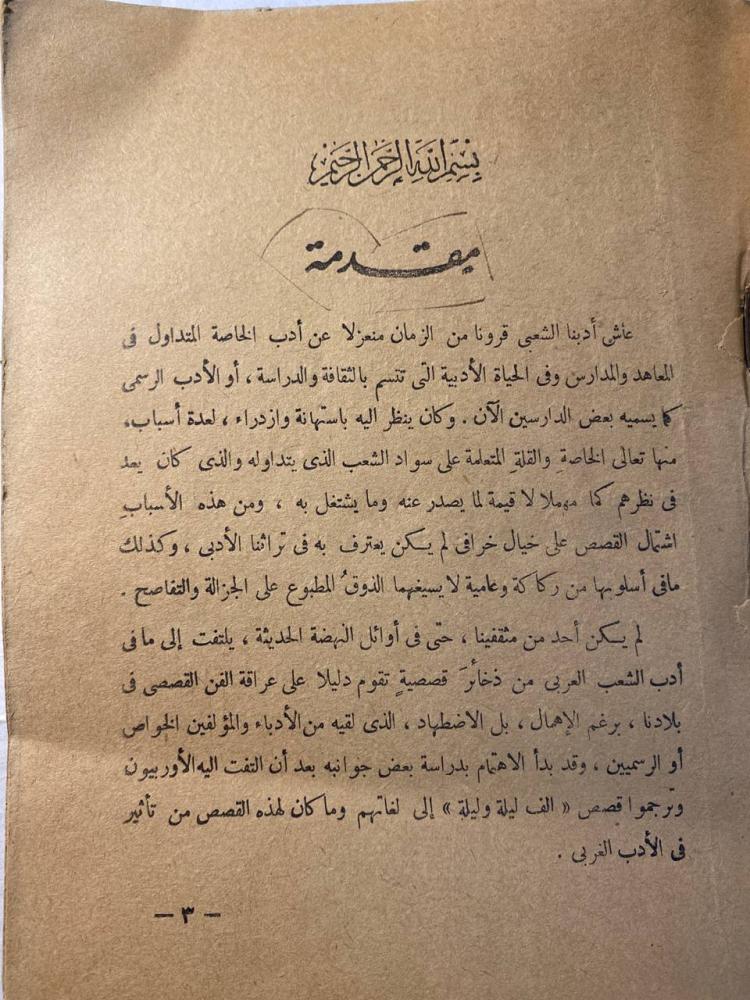 بسم الله الرحمن الرحيم
مقدمة
عاش أدبنا الشعبى قرونا من الزمان منعزلا عن أدب الخاصة المتداول فى
المعاهد والمدارس وفى الحياة الأدبية التى تتسم بالثقافة والدراسة ، أو الأدب الرسمى
كما يسميه بعض الدارسين الآن . وكان ينظر اليه باستهانة وازدراء ، لعدة أسباب،
منها تعالى الخاصة والقلة المتعلمة على سواد الشعب الذى يتداوله والذى كان يعد
فى نظرهم كما مهملا لا قيمة لما يصدر عنه وما يشتغل به ، ومن هذه الأسباب
اشتمال القصص على خيال خرافى لم يكن يعترف به فى تراثنا الأدبى ، وكذلك
مافى أسلوبها من ركاكة وعامية لا يسيغهما الذوقُ المطبوع على الجزالة والتفاصح .
لم يكن أحد من مثقفينا ، حتى فى أوائل النهضة الحديثة ، يلتفت إلى مافى
أدب الشعب العربى من ذخائرَ قصصيةٍ تقوم دليلا على عراقة الفن القصصى فى
بلادنا ، برغم الإهمال ، بل الاضطهاد ، الذى لقيه من الأدباء والمؤلفين الخواص
أو الرسميين ، وقد بدأ الاهتمام بدراسة بعض جوانبه بعد أن التفت اليه الأوربيون
وترجموا قصص « الف ليلة وليلة » إلى لغاتهم وما كان لهذه القصص من تأثير
فى الأدب الغربى .
— ٣ —